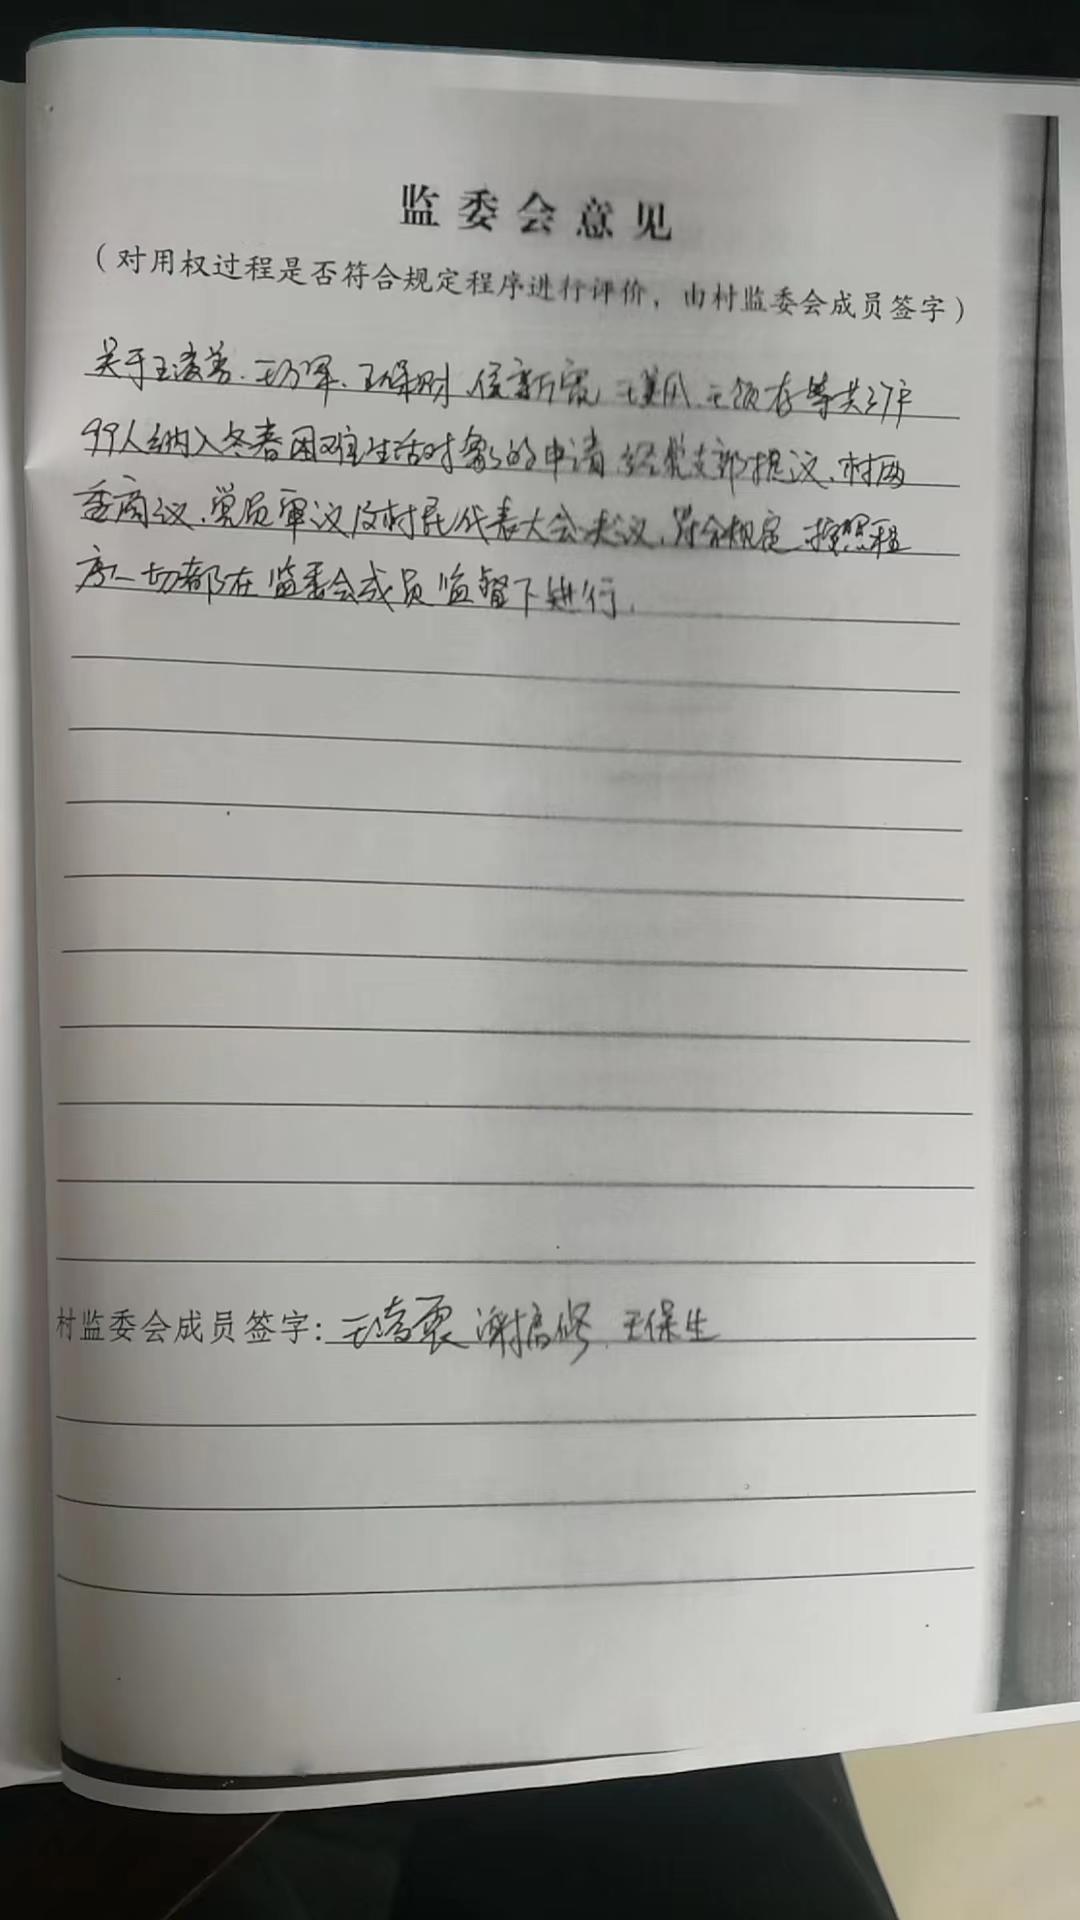 监委会意见
（对用权过程是否符合规定程序进行评价，由村监委会成员签字）
关于王凌善、王万军、王保财、侯新霞、王领存等共37户
99人纳入冬春困难生活对象的申请经党支部提议、村两
委商议、党员审议及村民代表大会决议，符合规定，按照程
序，一切都在监委会成员监督下进行。
村监委会成员签字：王 王保生